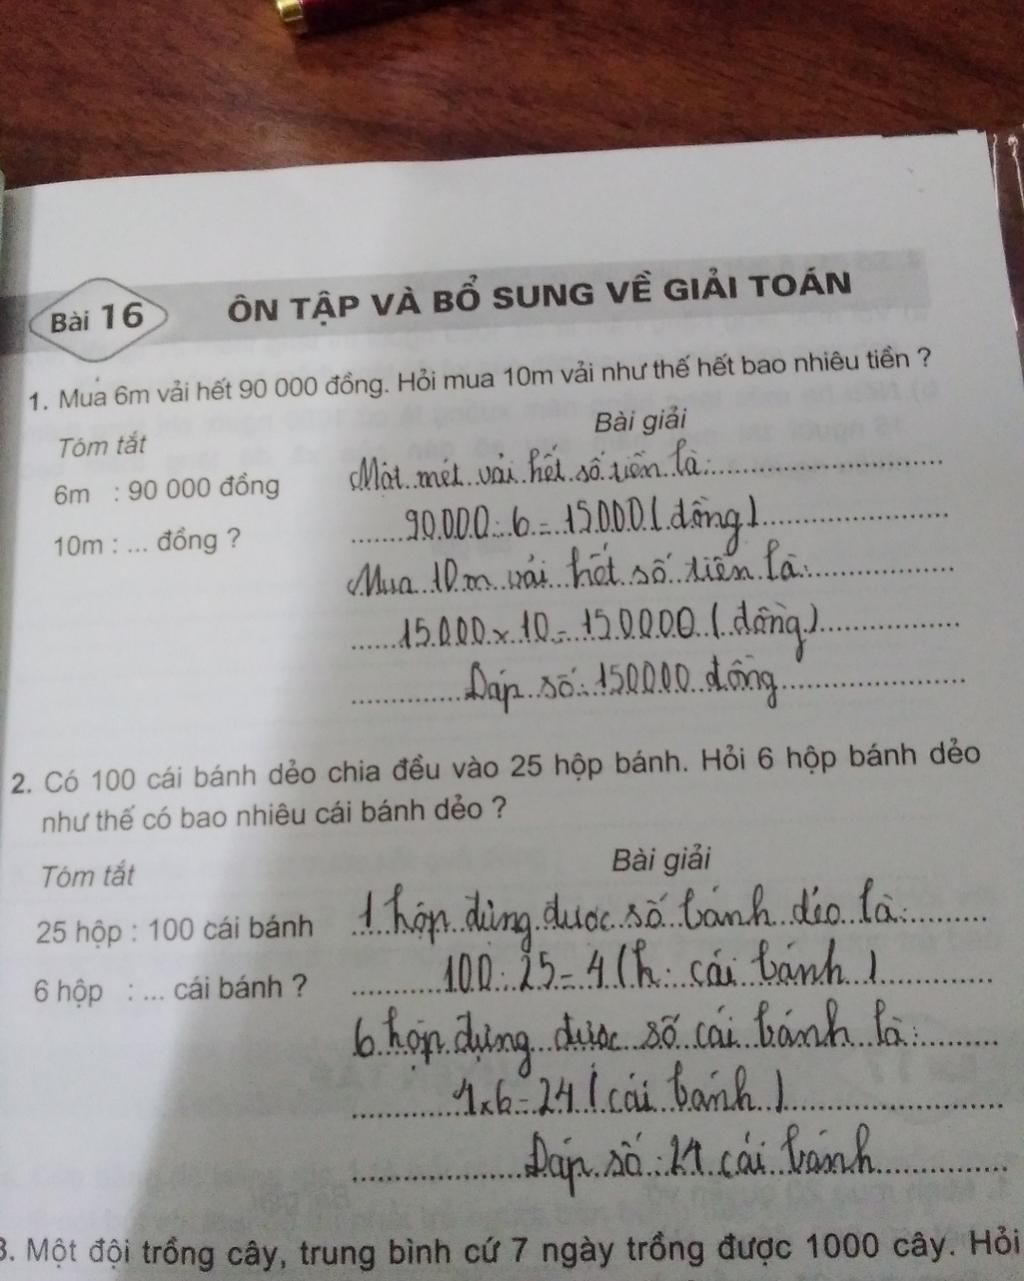 Bài 16 ÔN TẬP VÀ BỔ SUNG VỀ GIẢI TOÁN
1. Mua 6m vải hết 90 000 đồng. Hỏi mua 10m vải như thế hết bao nhiêu tiền ?
Tóm tắt
6m : 90 000 đồng
10m : ... đồng ?
Bài giải
Một mét vải hết số tiền là:
90000 : 6 = 15000 (đồng)
Mua 10m vải hết số tiền là:
15000 x 10 = 150000 (đồng)
Đáp số: 150000 đồng
2. Có 100 cái bánh dẻo chia đều vào 25 hộp bánh. Hỏi 6 hộp bánh dẻo
như thế có bao nhiêu cái bánh dẻo ?
Tóm tắt
25 hộp : 100 cái bánh
6 hộp : ... cái bánh ?
Bài giải
1 hộp đựng được số bánh dẻo là:
100 : 25 = 4 ( cái bánh )
6 hộp đựng được số cái bánh là:
4 x 6 = 24 ( cái bánh )
Đáp số : 24 cái bánh
3. Một đội trồng cây, trung bình cứ 7 ngày trồng được 1000 cây. Hỏi